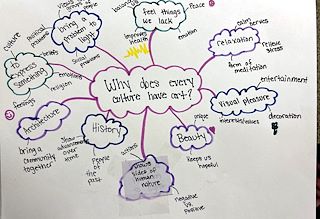 political problems
bring problem to light
social problems
culture
to express something
beliefs
religion
emotions
feelings
feel things we lack
Improves health
emotion
Peace
relaxation
calm nerves
relieve stress
form of meditation
entertainment
Visual pleasure
interests/values
decoration
Why does every
culture have art?
Architecture
bring a
community
together
History
show advancement
over time
People
of the
past
actions
shows sides
of human
nature
negative
or
positive
Beauty
unique
keeps us
hopeful